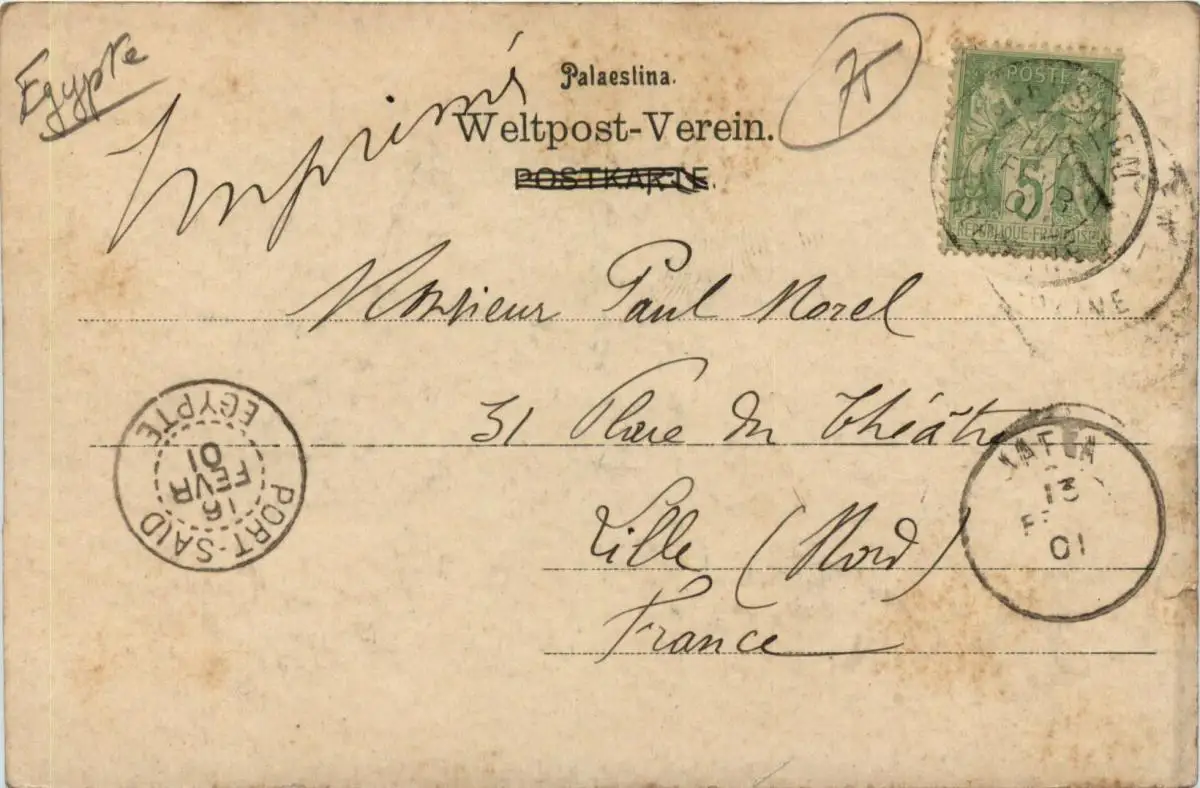 Egypte
Imprimé
Palaestina.
Weltpost-Verein.
POSTKARTE.
75
POSTE
5
REPUBLIQUE FRANÇAISE
JERUSALEM
PALESTINE
Monsieur Paul Morel
31 Place du Théâtre
Lille (Nord)
France
PORT-SAID
16
FEVR
01
EGYPTE
JAFFA
13
01